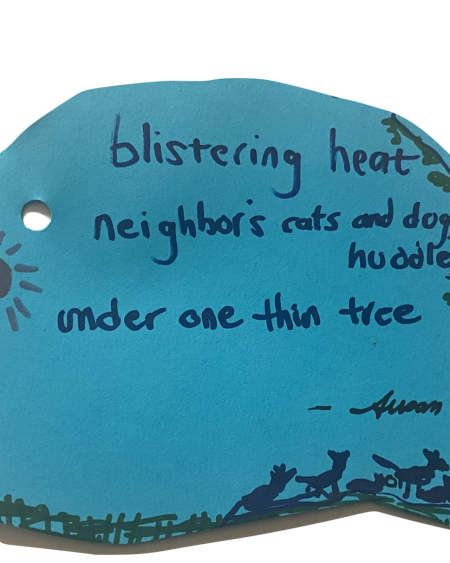 blistering heat
neighbor's cats and dog
huddle
under one thin tree
- Susan